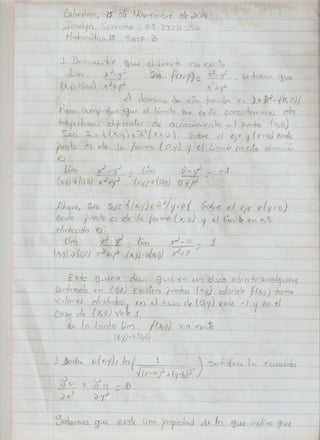 Cabudare, 15 de Noviembre de 2019
Matemática III SAIA B
1. Demuestre que el límite no existe
lim x²-y² Sea f(x,y) = x²-y² , se tiene que
(x,y)→(0,0) x²+y² x²+y²
el dominio de esta función es
Para comprobar que el límite no existe consideremos dos
trayectorias diferentes de acercamiento al punto (0,0)
Sea S₁ = {(x,y) ∈ ℝ² / x=0} Sobre el eje y (x=0) cada
punto es de la forma (0,y) y el límite en esta dirección
es:
lim x²-y² = lim 0-y² = -1
(x,y)→(0,0) x²+y² (x,y)→(0,y) 0+y²
Ahora, Sea S₂ = {(x,y) ∈ ℝ² / y=0} Sobre el eje x (y=0)
cada punto es de la forma (x,0) y el límite en esta
dirección es:
lim x²-y² = lim x²-0 = 1
(x,y)→(0,0) x²+y² (x,y)→(x,0) x²+0
Esto quiere decir que en un disco abierto cualquiera
centrado en (0,0) existen puntos (x,y) donde f(x,y) toma
valores distintos, en el caso de (0,y) vale -1 y en el
caso de (x,0) vale 1.
Por lo tanto lim f(x,y) no existe
(x,y)→(0,0)
u(x,y) = ln ( 1 / √(x-a)²+(y-b)² ) satisface la ecuación
∂²u + ∂²u = 0
∂x² ∂y²
Sabemos que existe una propiedad de ln que indica que